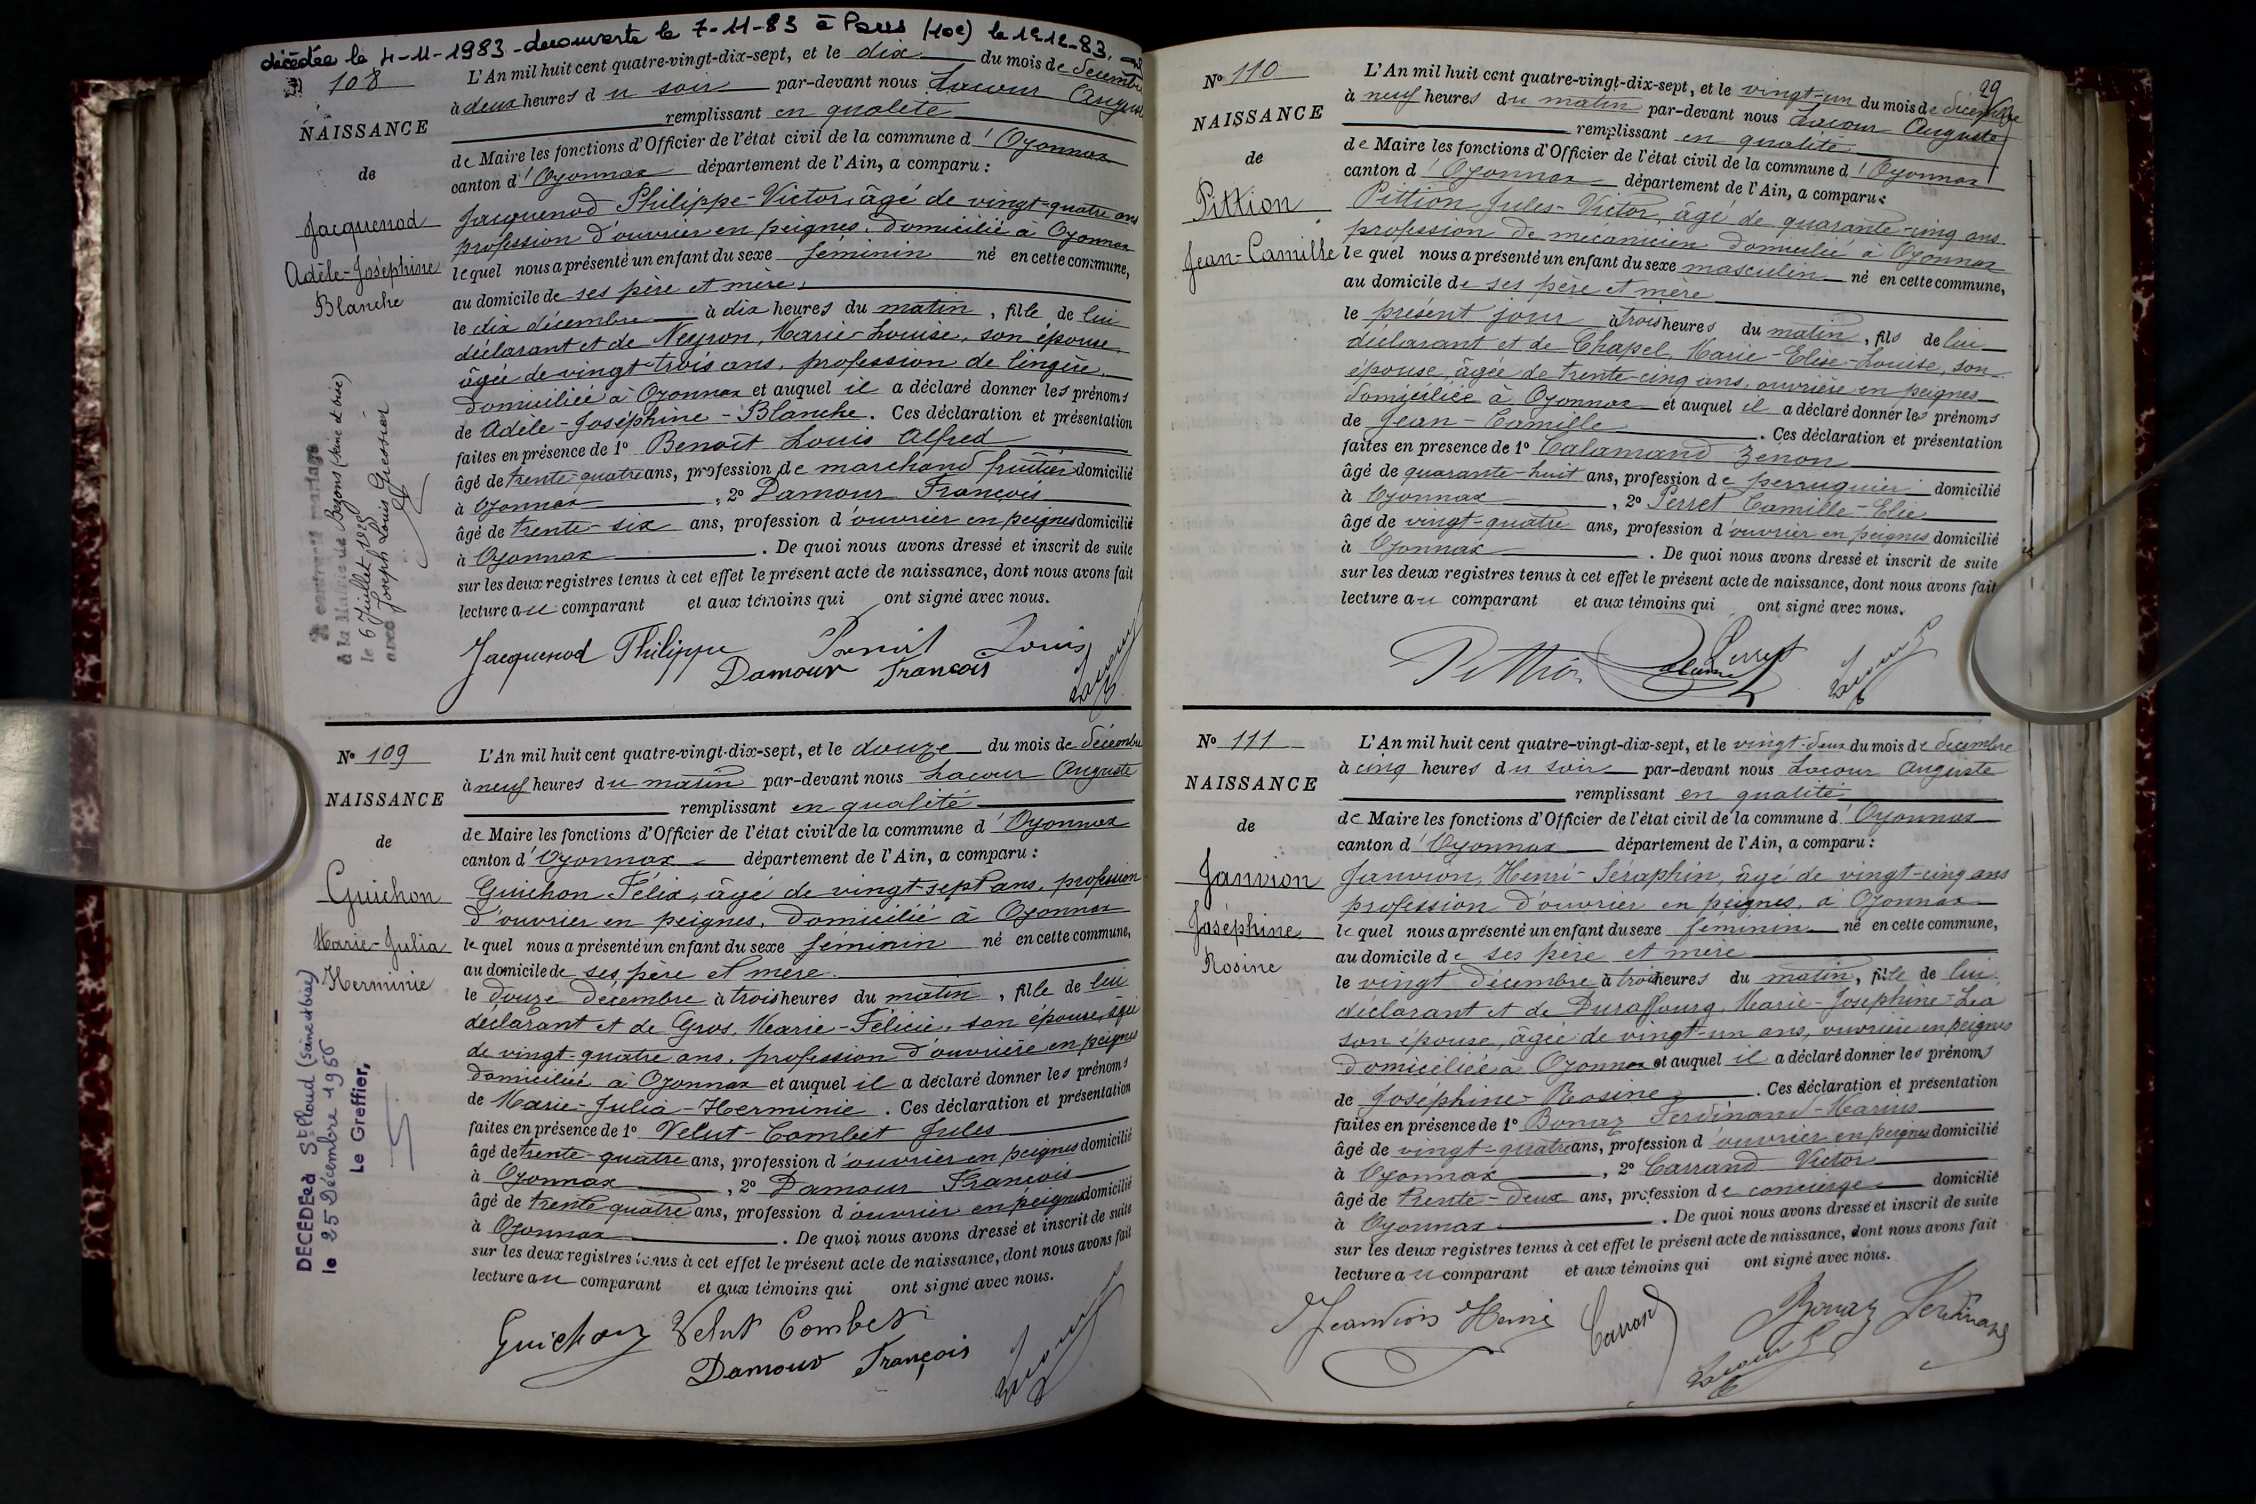 décédée le 4-11-1983 - découverte le 7-11-83 à Paris (10e) le 12-12-83.
108
NAISSANCE
de
Jacquenod
Adèle-Joséphine
Blanche
à la Mairie de Bezons (Seine et Oise)
le 6 Juillet
avec Joseph Louis
L'An mil huit cent quatre-vingt-dix-sept, et le dix du mois de décembre
à deux heures du soir par-devant nous Lacour Auguste
remplissant en qualité
de Maire les fonctions d'Officier de l'état civil de la commune d'Oyonnax
canton d'Oyonnax département de l'Ain, a comparu :
Jacquenod Philippe-Victor, âgé de vingt-quatre ans
profession d'ouvrier en peignes, domicilié à Oyonnax
lequel nous a présenté un enfant du sexe féminin né en cette commune,
au domicile de ses père et mère,
le dix décembre à dix heures du matin, fille de lui
déclarant et de Neyron, Marie-Louise, son épouse,
âgée de vingt-trois ans, profession de lingère,
domiciliée à Oyonnax et auquel il a déclaré donner les prénoms
de Adèle-Joséphine-Blanche. Ces déclaration et présentation
faites en présence de 1º Benoît Louis Alfred
âgé de trente-quatre ans, profession de marchand fruitier domicilié
à Oyonnax, 2º Damour François
âgé de trente-six ans, profession d'ouvrier en peignes domicilié
à Oyonnax. De quoi nous avons dressé et inscrit de suite
sur les deux registres tenus à cet effet le présent acte de naissance, dont nous avons fait
lecture au comparant et aux témoins qui ont signé avec nous.
Jacquenod Philippe Benoit Louis
Damour François Lacour
Nº 109
NAISSANCE
de
Guichon
Marie-Julia
Herminie
DÉCÉDÉE à St Cloud (Seine et Oise)
le 25 Décembre 1956
Le Greffier,
L'An mil huit cent quatre-vingt-dix-sept, et le douze du mois de décembre
à neuf heures du matin par-devant nous Lacour Auguste
remplissant en qualité
de Maire les fonctions d'Officier de l'état civil de la commune d'Oyonnax
canton d'Oyonnax département de l'Ain, a comparu :
Guichon Félix, âgé de vingt-sept ans, profession
d'ouvrier en peignes, domicilié à Oyonnax
lequel nous a présenté un enfant du sexe féminin né en cette commune,
au domicile de ses père et mère.
le douze décembre à trois heures du matin, fille de lui
déclarant et de Gros, Marie-Félicie, son épouse, âgée
de vingt-quatre ans, profession d'ouvrière en peignes
domiciliée à Oyonnax et auquel il a déclaré donner les prénoms
de Marie-Julia-Herminie. Ces déclaration et présentation
faites en présence de 1º Velut-Combet Jules
âgé de trente-quatre ans, profession d'ouvrier en peignes domicilié
à Oyonnax, 2º Damour François
âgé de trente quatre ans, profession d'ouvrier en peignes domicilié
à Oyonnax. De quoi nous avons dressé et inscrit de suite
sur les deux registres tenus à cet effet le présent acte de naissance, dont nous avons fait
lecture au comparant et aux témoins qui ont signé avec nous.
Guichon Velut Combet
Damour François Lacour
29
Nº 110
NAISSANCE
de
Pittion
Jean-Camille
L'An mil huit cent quatre-vingt-dix-sept, et le vingt-un du mois de décembre
à neuf heures du matin par-devant nous Lacour Auguste
remplissant en qualité
de Maire les fonctions d'Officier de l'état civil de la commune d'Oyonnax
canton d'Oyonnax département de l'Ain, a comparu :
Pittion Jules-Victor, âgé de quarante-cinq ans
profession de mécanicien domicilié à Oyonnax
lequel nous a présenté un enfant du sexe masculin né en cette commune,
au domicile de ses père et mère
le présent jour à trois heures du matin, fils de lui
déclarant et de Chapel, Marie-Elise-Louise, son
épouse, âgée de trente-cinq ans, ouvrière en peignes
domiciliée à Oyonnax et auquel il a déclaré donner les prénoms
de Jean-Camille. Ces déclaration et présentation
faites en presence de 1º Calamand Zénon
âgé de quarante-huit ans, profession de perruquier domicilié
à Oyonnax, 2º Perret Camille-Elie
âgé de vingt-quatre ans, profession d'ouvrier en peignes domicilié
à Oyonnax. De quoi nous avons dressé et inscrit de suite
sur les deux registres tenus à cet effet le présent acte de naissance, dont nous avons fait
lecture au comparant et aux témoins qui ont signé avec nous.
Pittion Perret Lacour
Nº 111
NAISSANCE
de
Janvion
Joséphine
Rosine
L'An mil huit cent quatre-vingt-dix-sept, et le vingt-deux du mois de décembre
à cinq heures du soir par-devant nous Lacour Auguste
remplissant en qualité
de Maire les fonctions d'Officier de l'état civil de la commune d'Oyonnax
canton d'Oyonnax département de l'Ain, a comparu :
Janvion, Henri-Séraphin, âgé de vingt-cinq ans
profession d'ouvrier en peignes, à Oyonnax
lequel nous a présenté un enfant du sexe féminin né en cette commune,
au domicile de ses père et mère
le vingt décembre à trois heures du matin, fille de lui
déclarant et de Duraffourg, Marie-Joséphine-Léa
son épouse, âgée de vingt-un ans, ouvrière en peignes
domiciliée à Oyonnax et auquel il a déclaré donner les prénoms
de Joséphine-Rosine. Ces déclaration et présentation
faites en présence de 1º Bonaz Ferdinand-Marius
âgé de vingt-quatre ans, profession d'ouvrier en peignes domicilié
à Oyonnax, 2º Carrand Victor
âgé de trente-deux ans, profession de concierge domicilié
à Oyonnax. De quoi nous avons dressé et inscrit de suite
sur les deux registres tenus à cet effet le présent acte de naissance, dont nous avons fait
lecture au comparant et aux témoins qui ont signé avec nous.
Henri Carrand Bonaz Ferdinand
Lacour